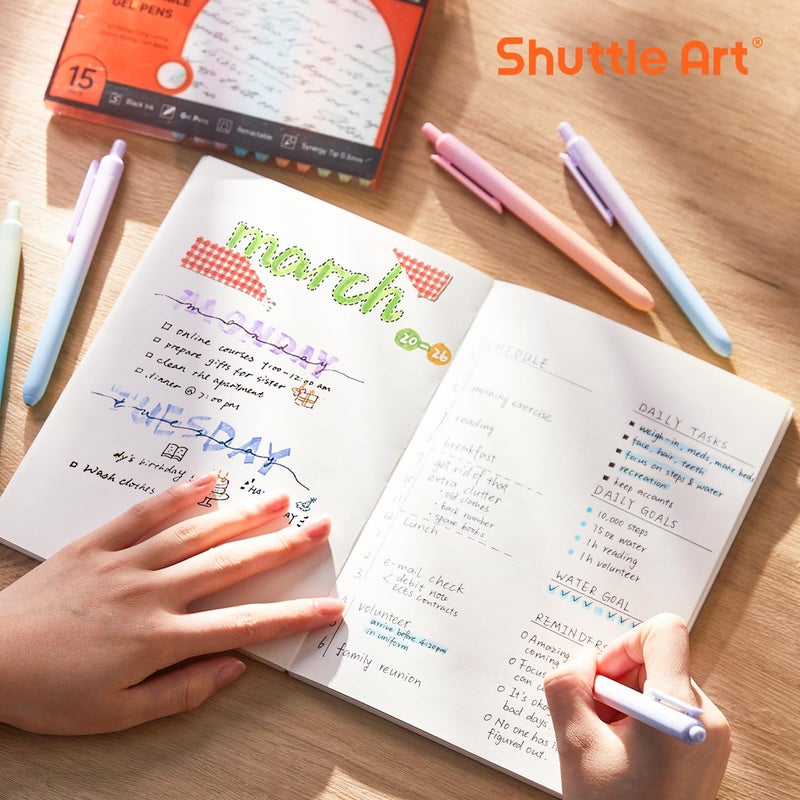 Shuttle Art®
GEL PENS
15
Black Ink
Gel Pens
Retractable
Synergy Tip 0.5mm
march
20-26
MONDAY
monday
online courses 9:00-12:00 am
prepare gifts for sister
clean the apartment
dinner @ 7:00pm
TUESDAY
tuesday
dy's birthday!
wash clothes
HA
AY
SCHEDULE
morning exercise
reading
breakfast
get rid of that
extra clutter
· old clothes
· back number
· spare books
Lunch
e-mail check
< debit note
ECES contracts
volunteer
arrive before 4:20pm
in uniform
6 family reunion
DAILY TASKS
weigh-in, meds, make bed
face, hair, teeth
focus on steps & water
recreation
keep accounts
DAILY GOALS
10,000 steps
75oz water
1h reading
1h volunteer
WATER GOAL
REMINDERS
Amazing
coming
Focus
can co
It's oka
bad days.
No one has i
figured out.